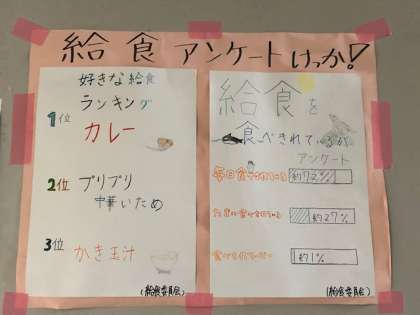 給食アンケートけっか!
好きな給食
ランキング
1位 カレー
2位 プリプリ
中華いため
3位 かき玉汁
(給食委員会)
給食を
食べきれているか
アンケート
毎日食べきれている 約72%
約27%
食べきれていない 約1%
(給食委員会)